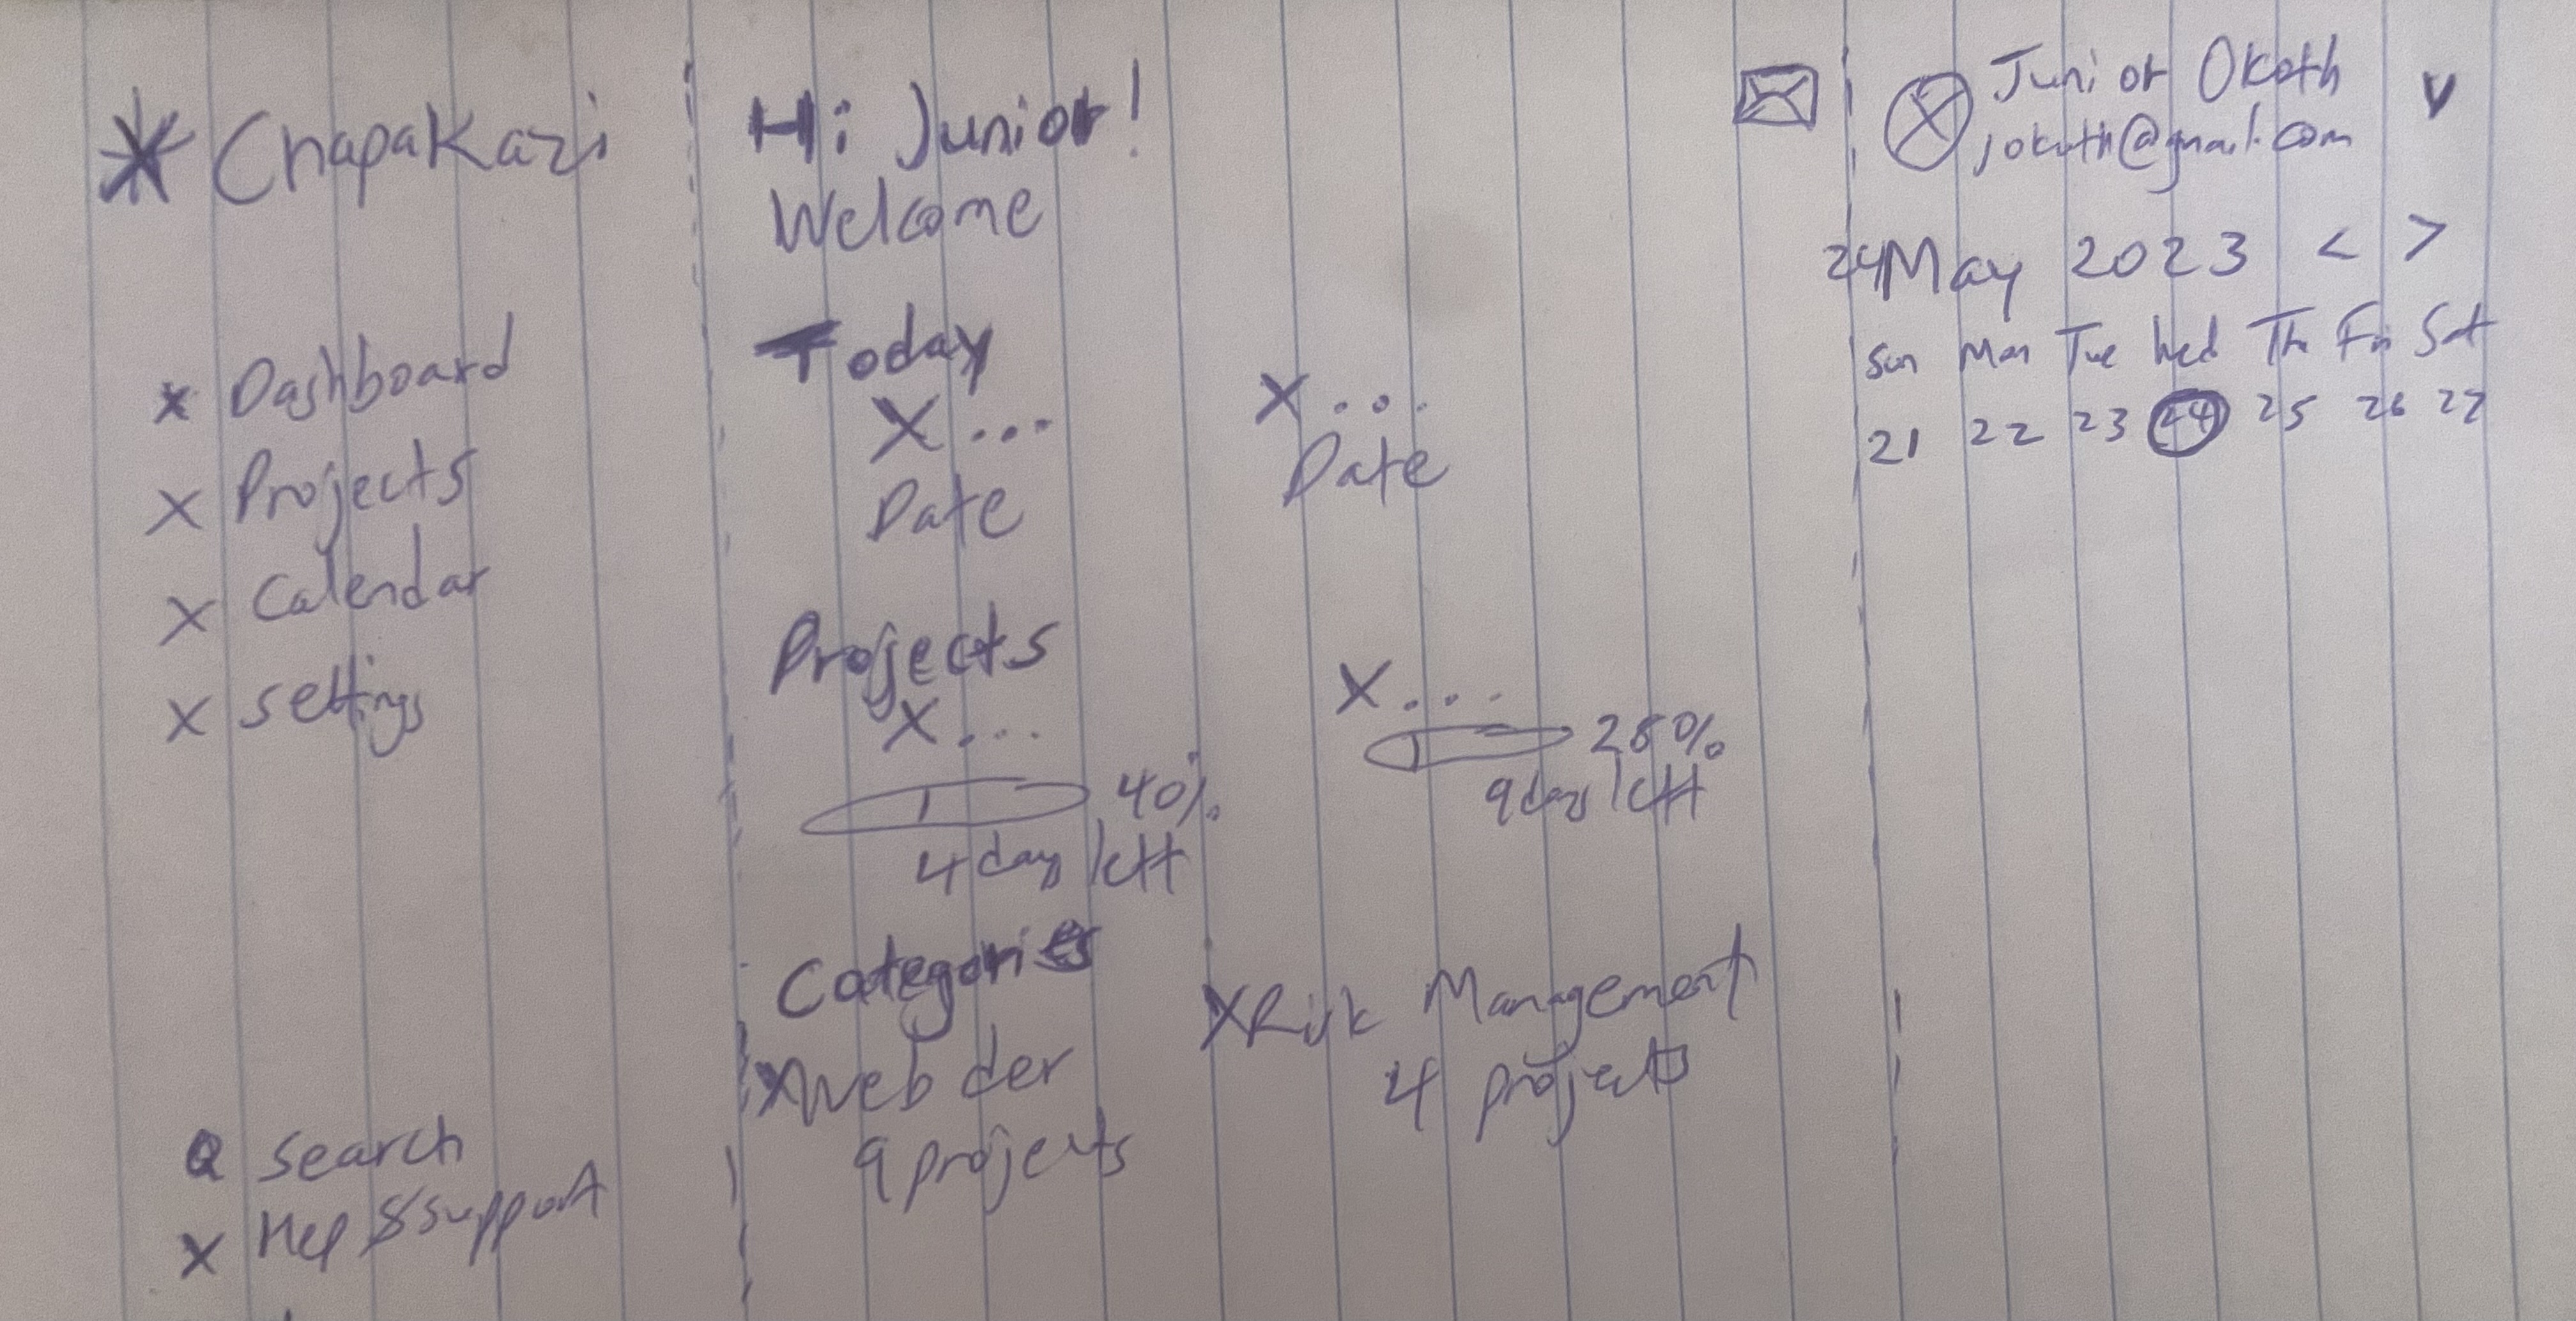 ChapaKazi
Dashboard
Projects
Calendar
Settings
Search
Help & support
Hi Junior!
Welcome
Today
X ...
Date
X ...
Date
Projects
X ...
40%
4 days left
X ...
28%
9 days left
Categories
X Web der
9 projects
X Risk Management
4 projects
Junior Okoth
jokoth@gmail.com
24 May 2023 < >
Sun Mon Tue Wed Th Fri Sat
21 22 23 24 25 26 27